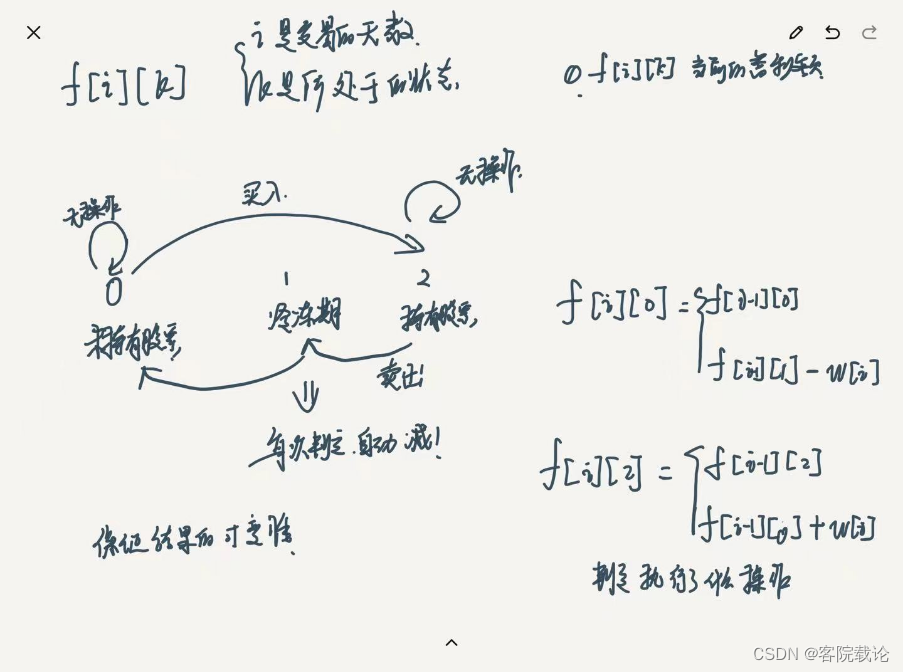 f[i][k]
i 是交易的天数.
k是所处于的状态,
① f[i][k] 当前的
无操作
买入.
无操作.
0
1
2
未持有股票,
冷冻期
持有股票,
卖出!
每次判定.自动减!
保证结果的
f[i][0] = f[i-1][0]
f[i-1][1] - w[i]
f[i][2] = f[i-1][2]
f[i-1][0] + w[i]
判定执行了什么操作
CSDN @客院载论